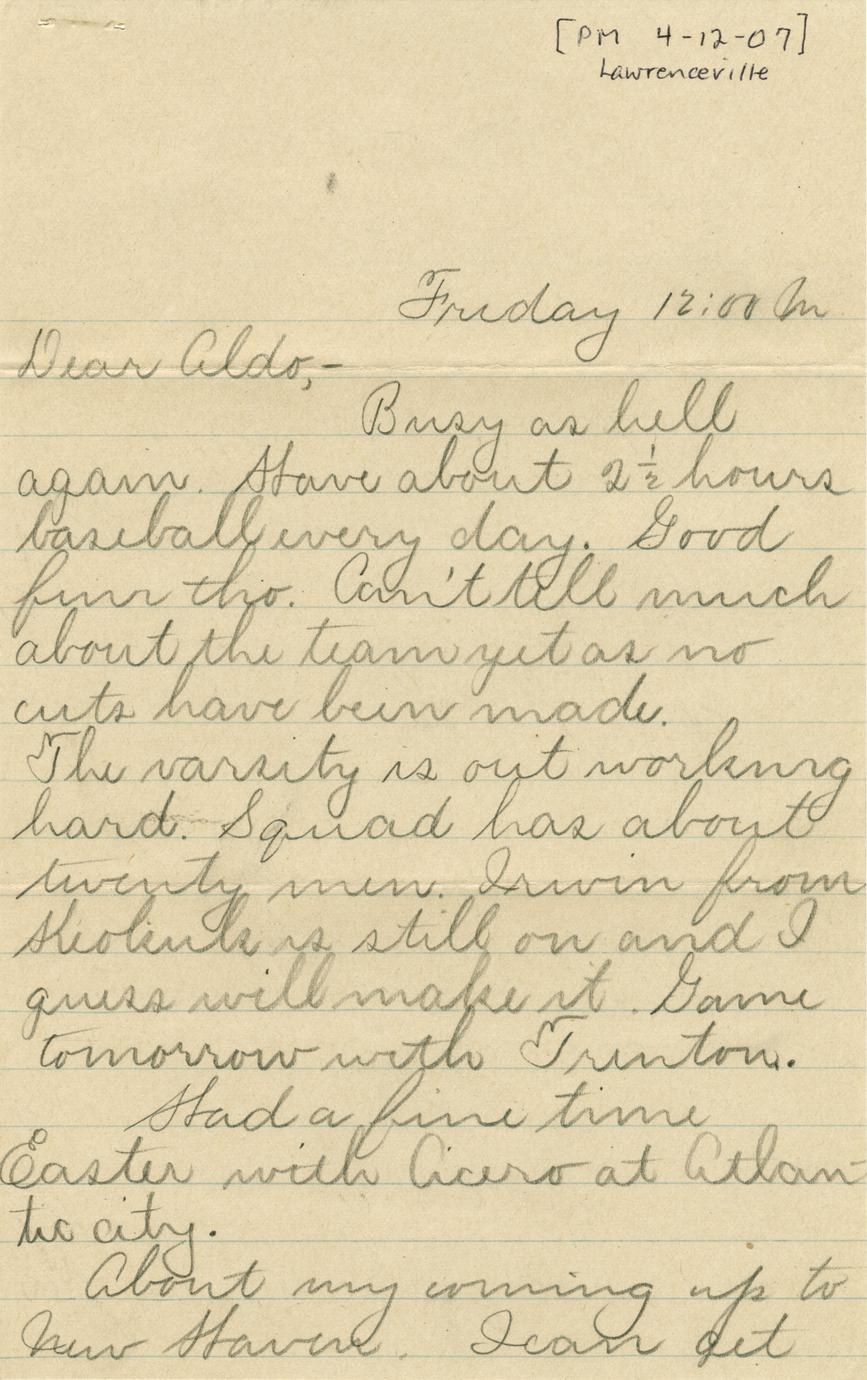 [PM 4-12-07]
Lawrenceville
Friday 12:00 M
Dear Aldo,-
Busy as hell
again. Have about 2 1/2 hours
baseball every day. Good
fun tho. Can't tell much
about the team yet as no
cuts have been made.
The varsity is out working
hard. Squad has about
twenty men. Irwin from
Keokuk is still on and I
guess will make it. Game
tomorrow with Trenton.
Had a fine time
Easter with Cicero at Atlan-
tic city.
About my coming up to
New Haven. I can get